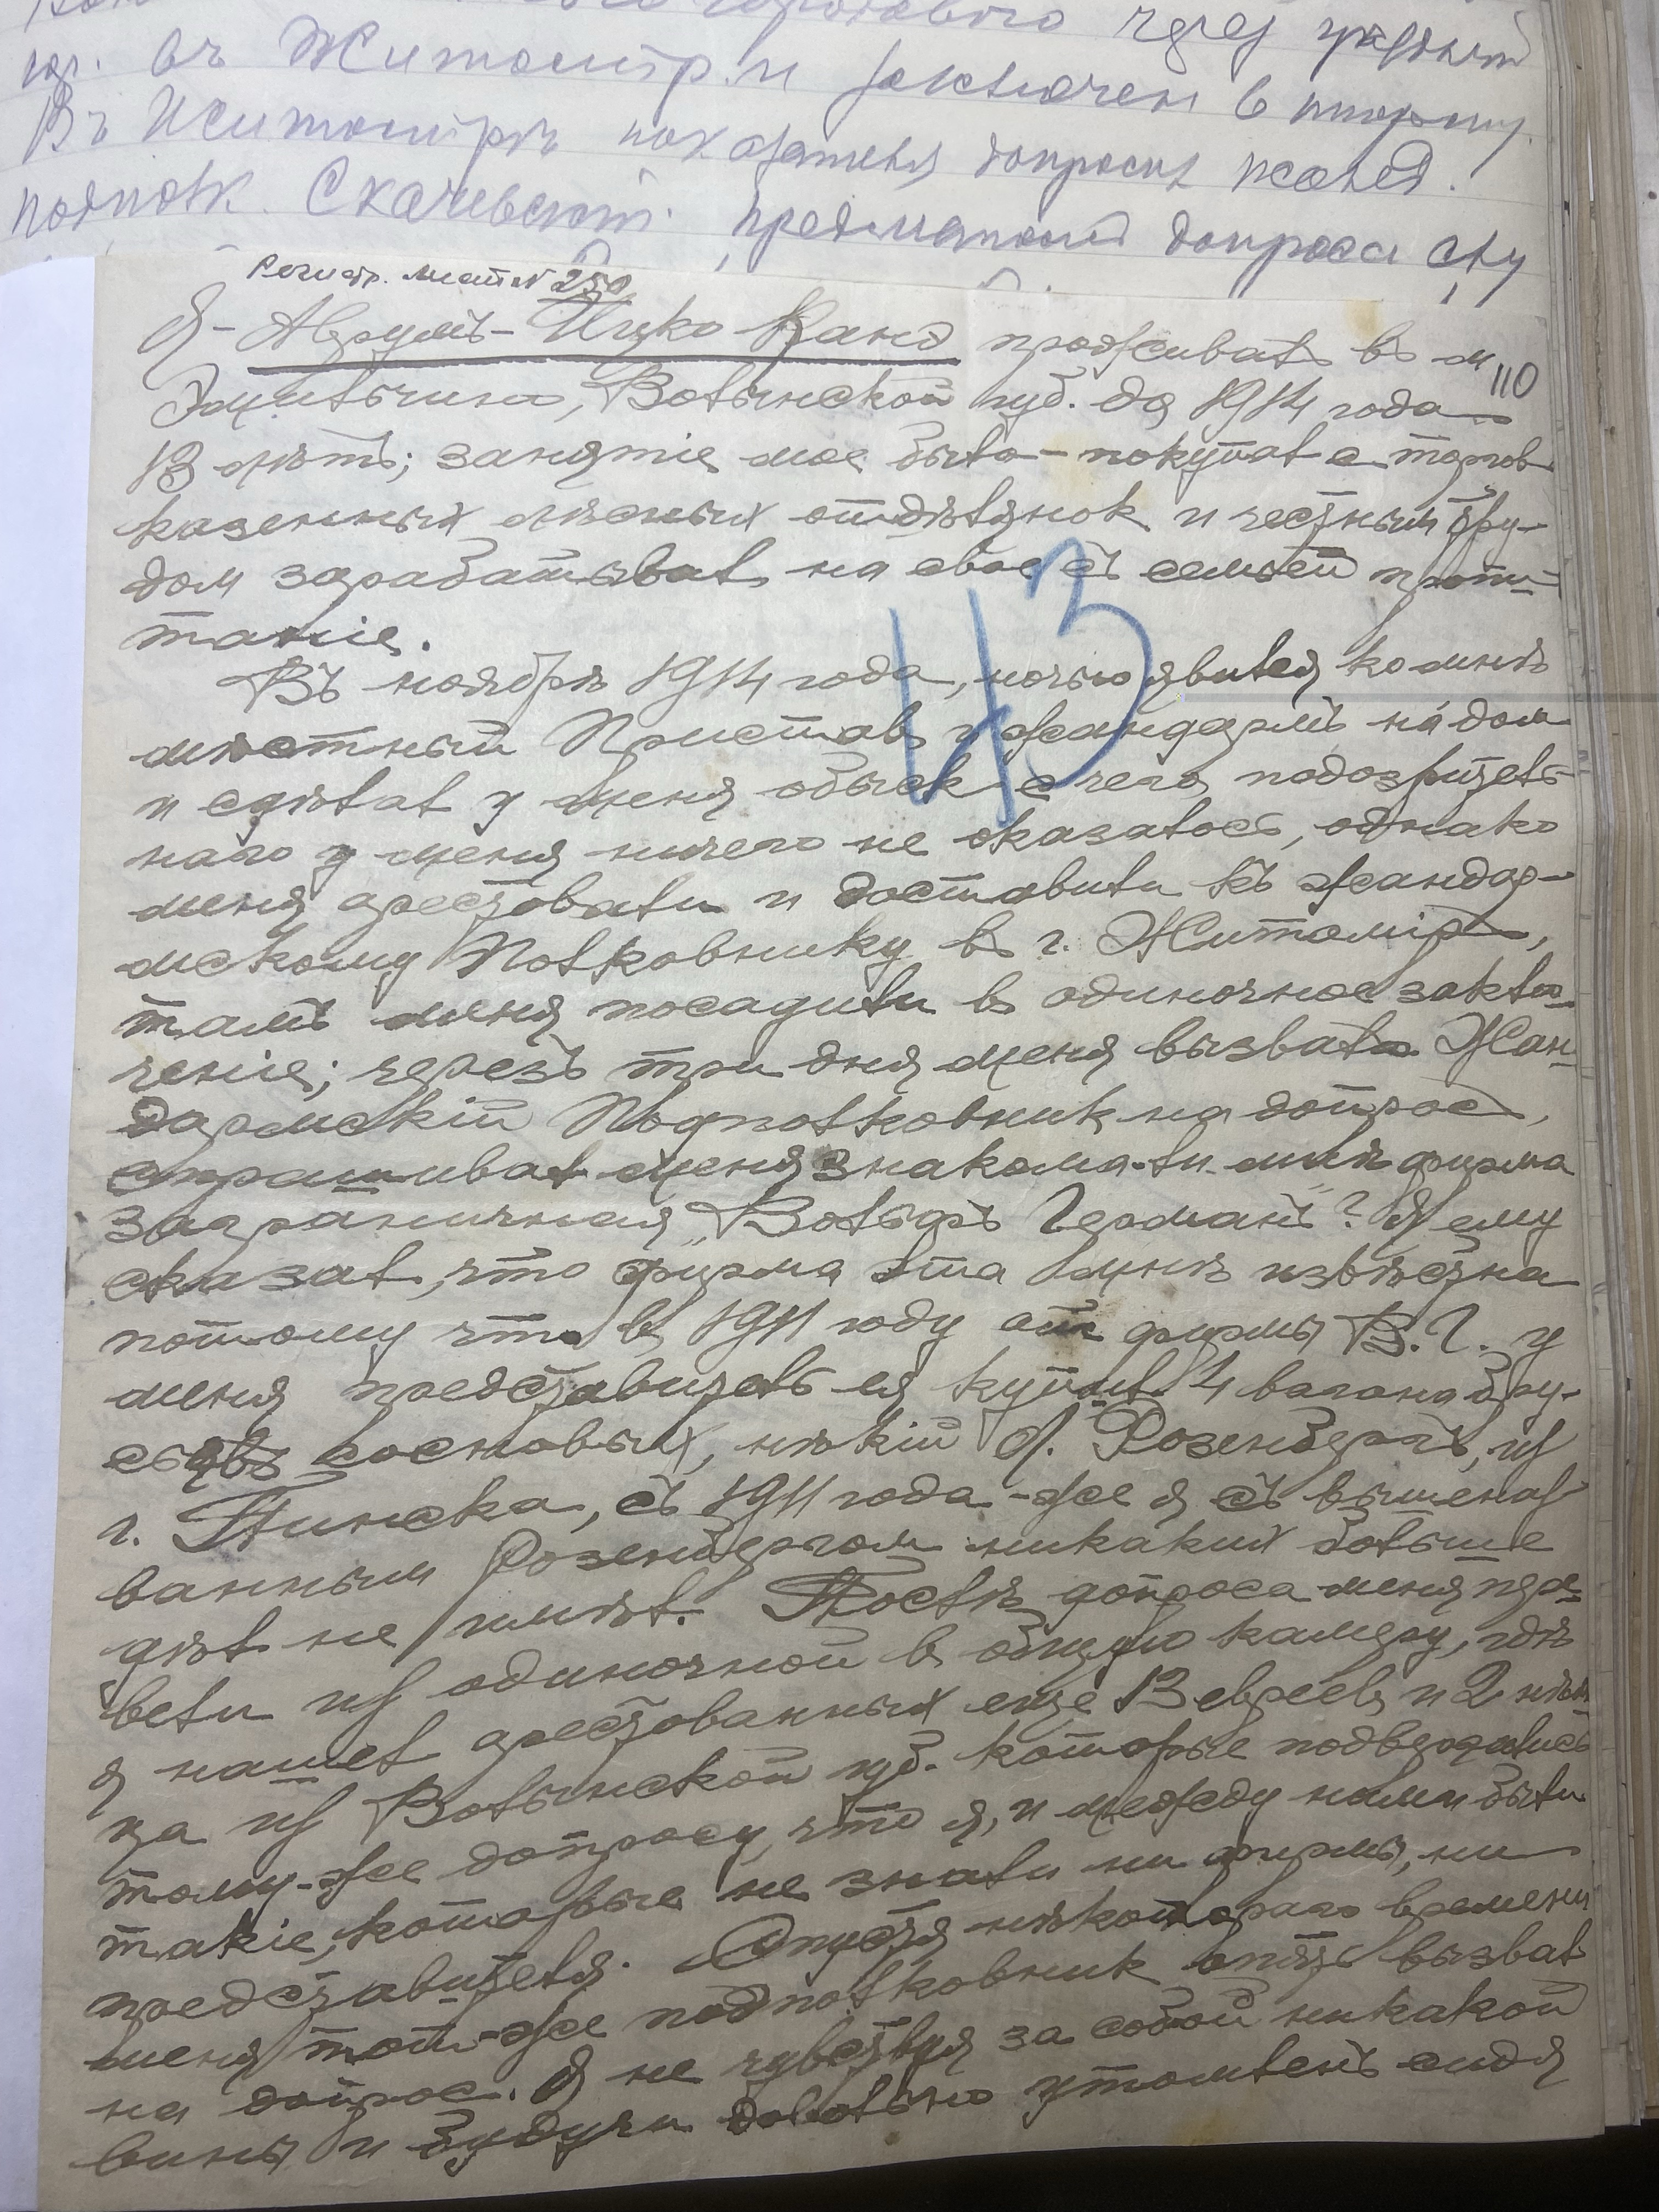 въ Житомір и заключен в тюрьму.
Въ Житомірѣ показателя допросил жанд.
подполк. Скачевскій. предметом допроса
Регистр. лист № 250
110
Я - Аврумъ-Ицко Канд проживалъ въ м.
Эмильчина, Волынской губ. до 1914 года
13 лѣтъ; занятіе мое было - покупал с торгов
казенных лѣсных отдѣлянок и честным тру-
дом зарабатывал на свое съ семьей пропи-
таніе.
43
Въ ноябрѣ 1914 года, ночью явился ко мнѣ
мѣстный Пристав и жандармъ на дом
и сдѣлал у меня обыск чего подозритель-
наго у меня ничего не оказалось, однако
меня арестовали и доставили къ жандар-
мскому Полковнику в г. Житомір,
тамъ меня посадили в одиночное заклю-
ченіе; черезъ три дня меня вызвал Жан-
дармскій Подполковник на допрос,
спрашивал меня знакома-ли мнѣ фирма
заграничная „Вольфъ Германъ"? Я ему
сказал, что фирма эта мнѣ извѣстна
потому что в 1911 году от фирмы В. Г. у
меня представитель ея купил 4 вагона бру-
сьев сосновых, нѣкій Розенбергъ, из
г. Пинска, съ 1911 года-же я съ вышеназ
ванным Розенбергом никаких больше
дѣл не имѣл. Послѣ допроса меня пере-
вели из одиночной в общую камеру, гдѣ
я нашел арестованных еще 13 евреев и 2 нѣм
ца из Волынской губ. которые подвергались
тому-же допросу, что я, и между ними были
такіе, которые не знали ни фирмы, ни
представителя. Спустя нѣкотораго времени
меня тот-же подполковник опять вызвал
на допрос. Я не чувствуя за собой никакой
вины и будучи довольно утомленъ сидя